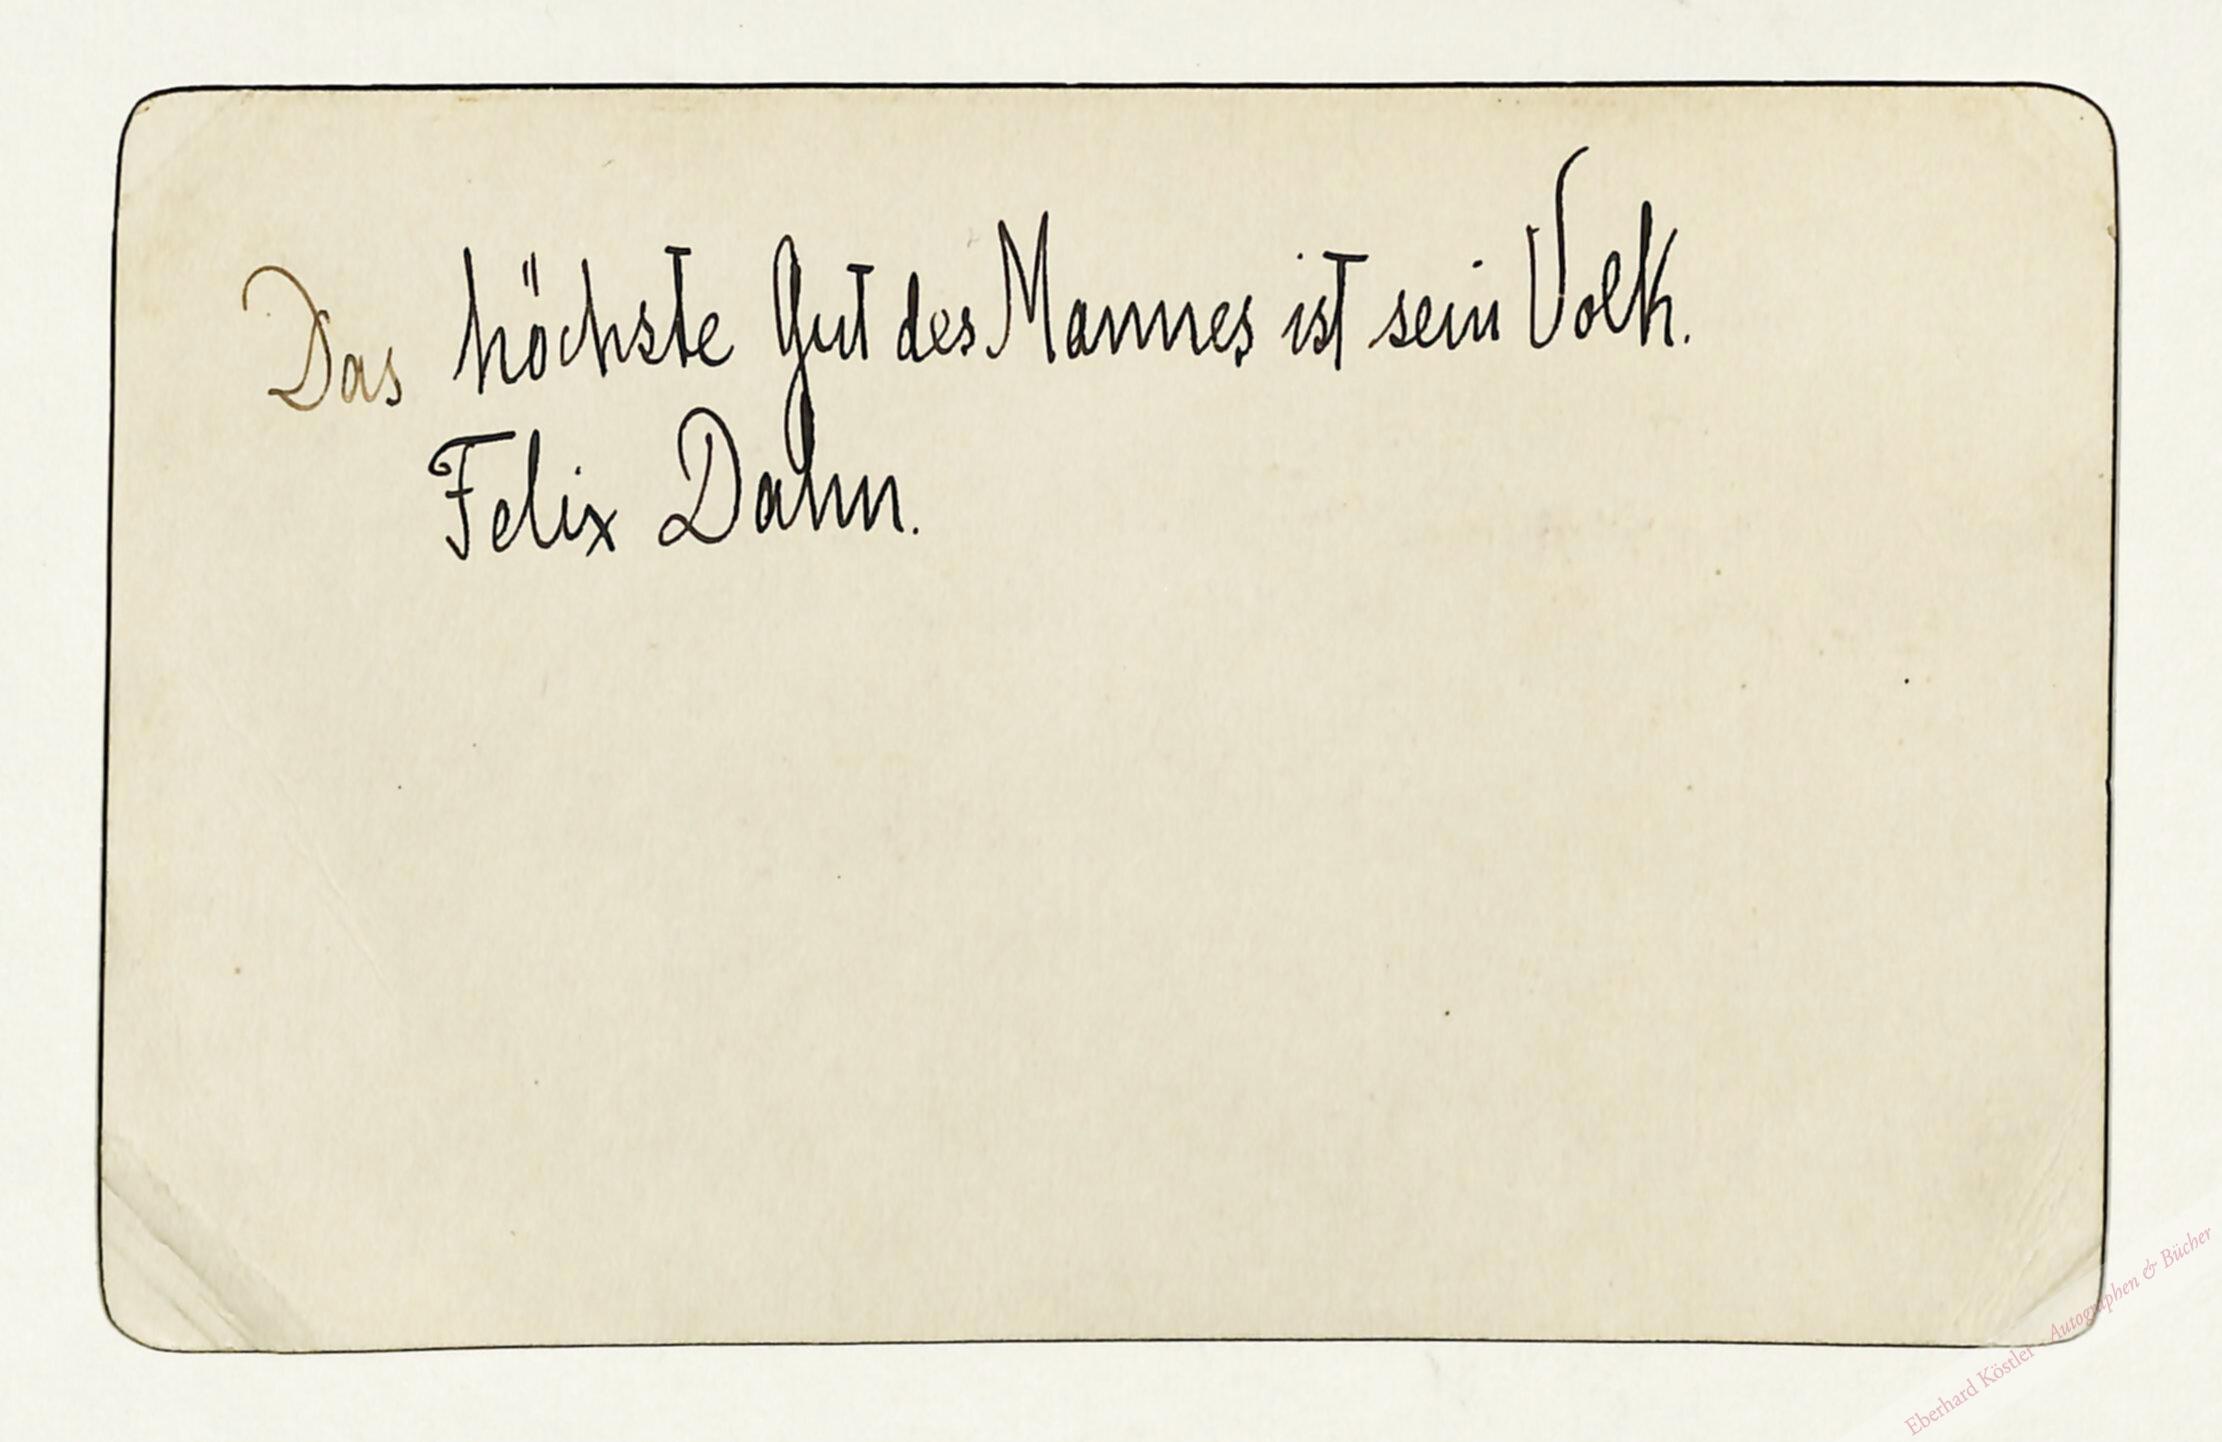 Das höchste Gut des Mannes ist sein Volk.
Felix Dahn.
Eberhard Köstler - Autographen & Bücher